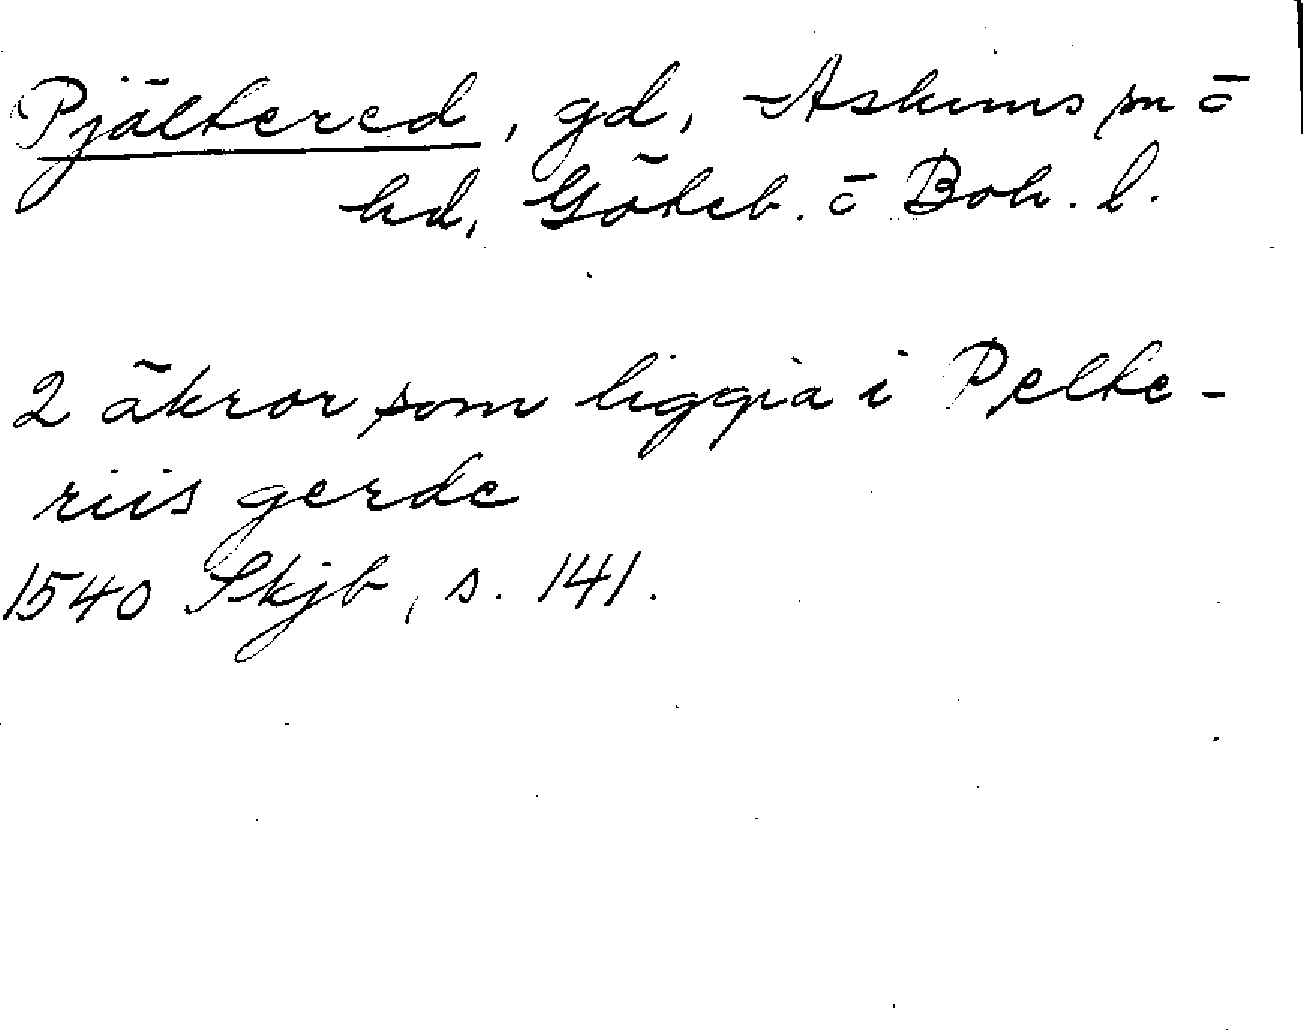 Pjältered, gd, Askims sn o
hd, Göteb. o Boh. l.
2 åkror som liggia i Pelte-
riis gerde
1540 Skjb, s. 141.